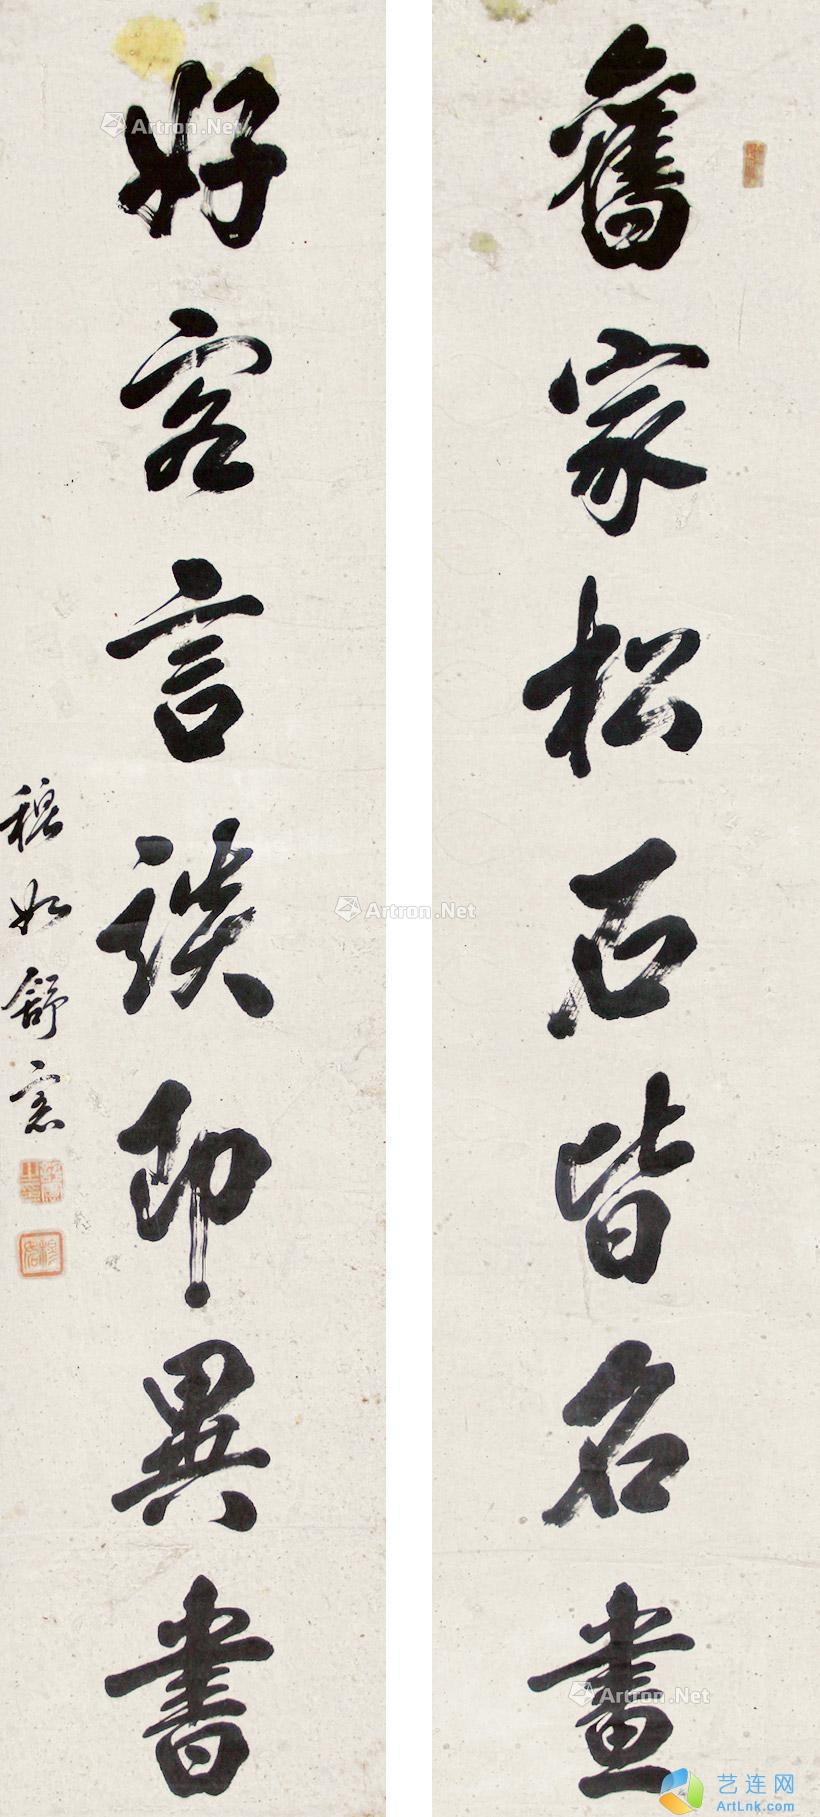 舊家松石皆名畫
好客言談即異書
穆如舒䆳
Artron.Net
Artron.Net
Artron.Net
艺连网
ArtLnk.com